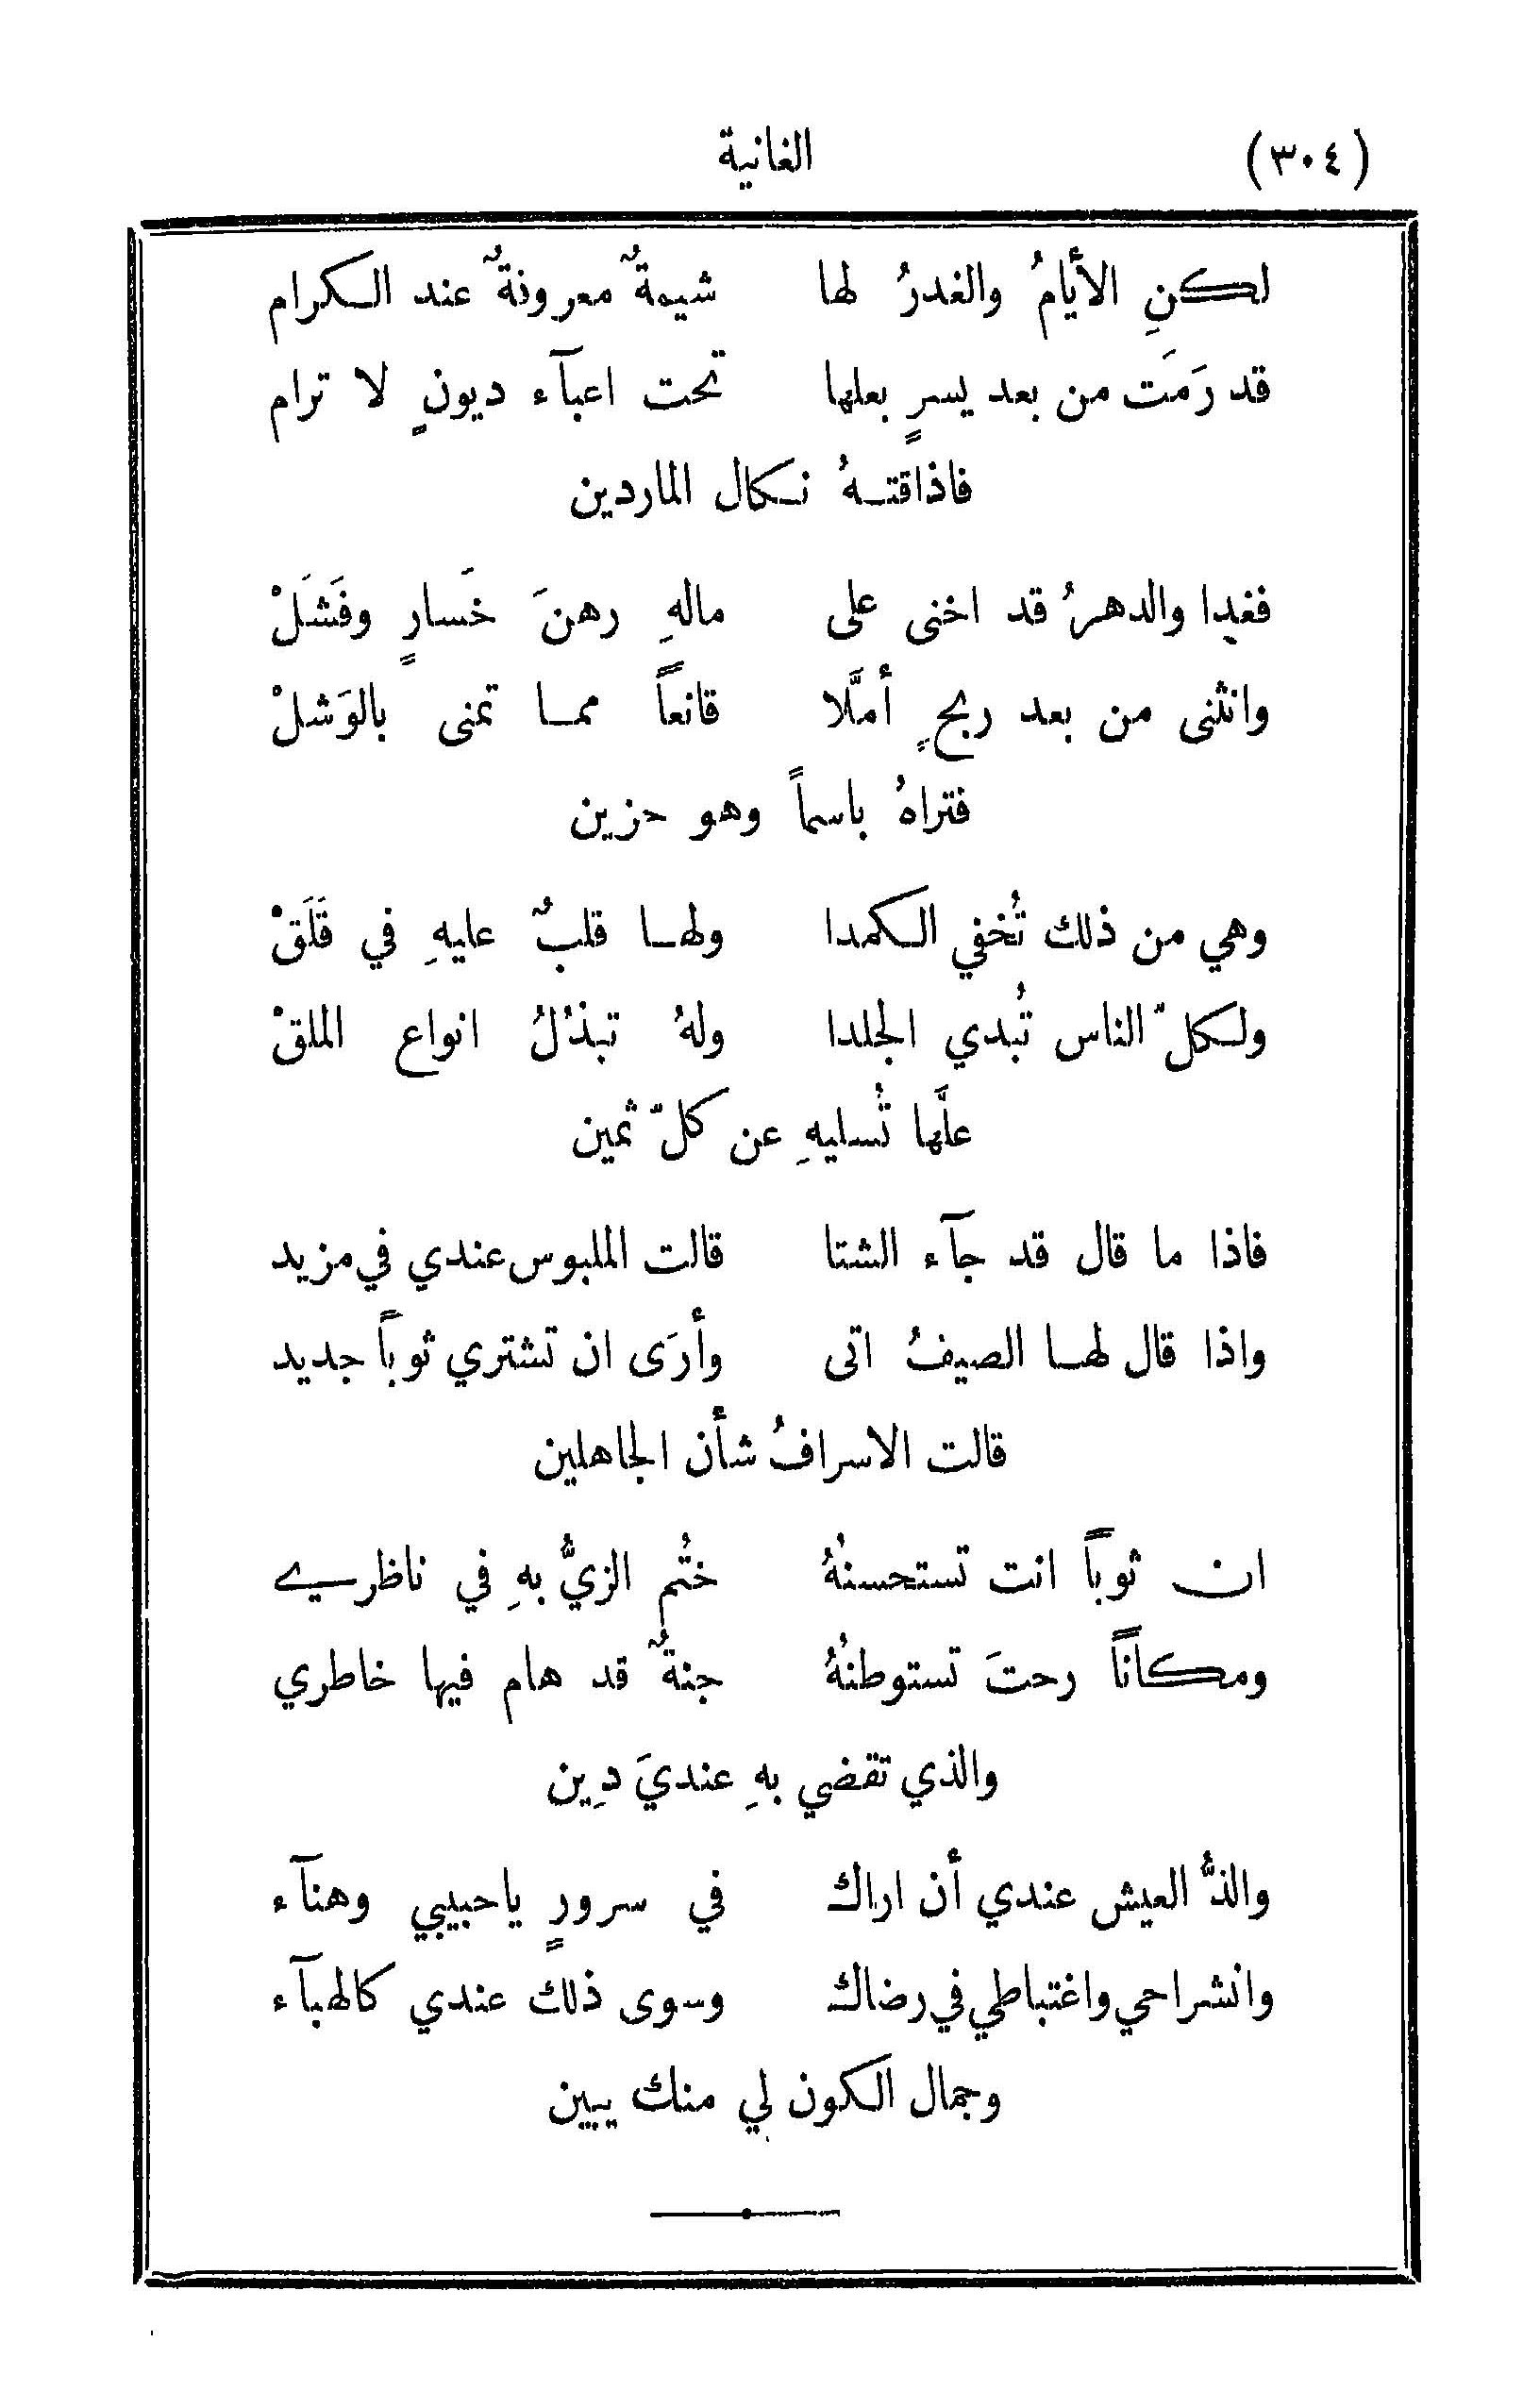 (٣٠٤) الغانية
لكنِ الأيامُ والغدرُ لها شيمةٌ معرونةٌ عند الكرام
قد رَمَت من بعد يسرٍ بعلها تحت اعبآء ديونٍ لا ترام
فاذاقتهُ نكال الماردين
فغدا والدهرُ قد اخنى على مالهِ رهنَ خَسارٍ وفَشَلْ
وانثنى من بعد ربحٍ أملَّا قانعاً مما تمنى بالوَشلْ
فتراهُ باسماً وهو حزين
وهي من ذلك تُخفي الكمدا ولها قلبٌ عليهِ في قَلَقْ
ولكلّ الناس تُبدي الجلدا ولهُ تبذُلُ انواع الملقْ
علَّها تُسليهِ عن كلّ ثمين
فاذا ما قال قد جآء الشتا قالت الملبوس عندي في مزيد
واذا قال لها الصيفُ اتى وأرَى ان تشتري ثوباً جديد
قالت الاسرافُ شأن الجاهلين
ان ثوباً انت تستحسنُهُ ختُم الزيُّ بهِ في ناظري
ومكاناً رحتَ تستوطنُهُ جنةٌ قد هام فيها خاطري
والذي تقضي بهِ عنديَ دِين
والذُّ العيش عندي أن اراك في سرورٍ ياحبيبي وهنآء
وانشراحي واغتباطي في رضاك وسوى ذلك عندي كالهبآء
وجمال الكون لي منك يبين